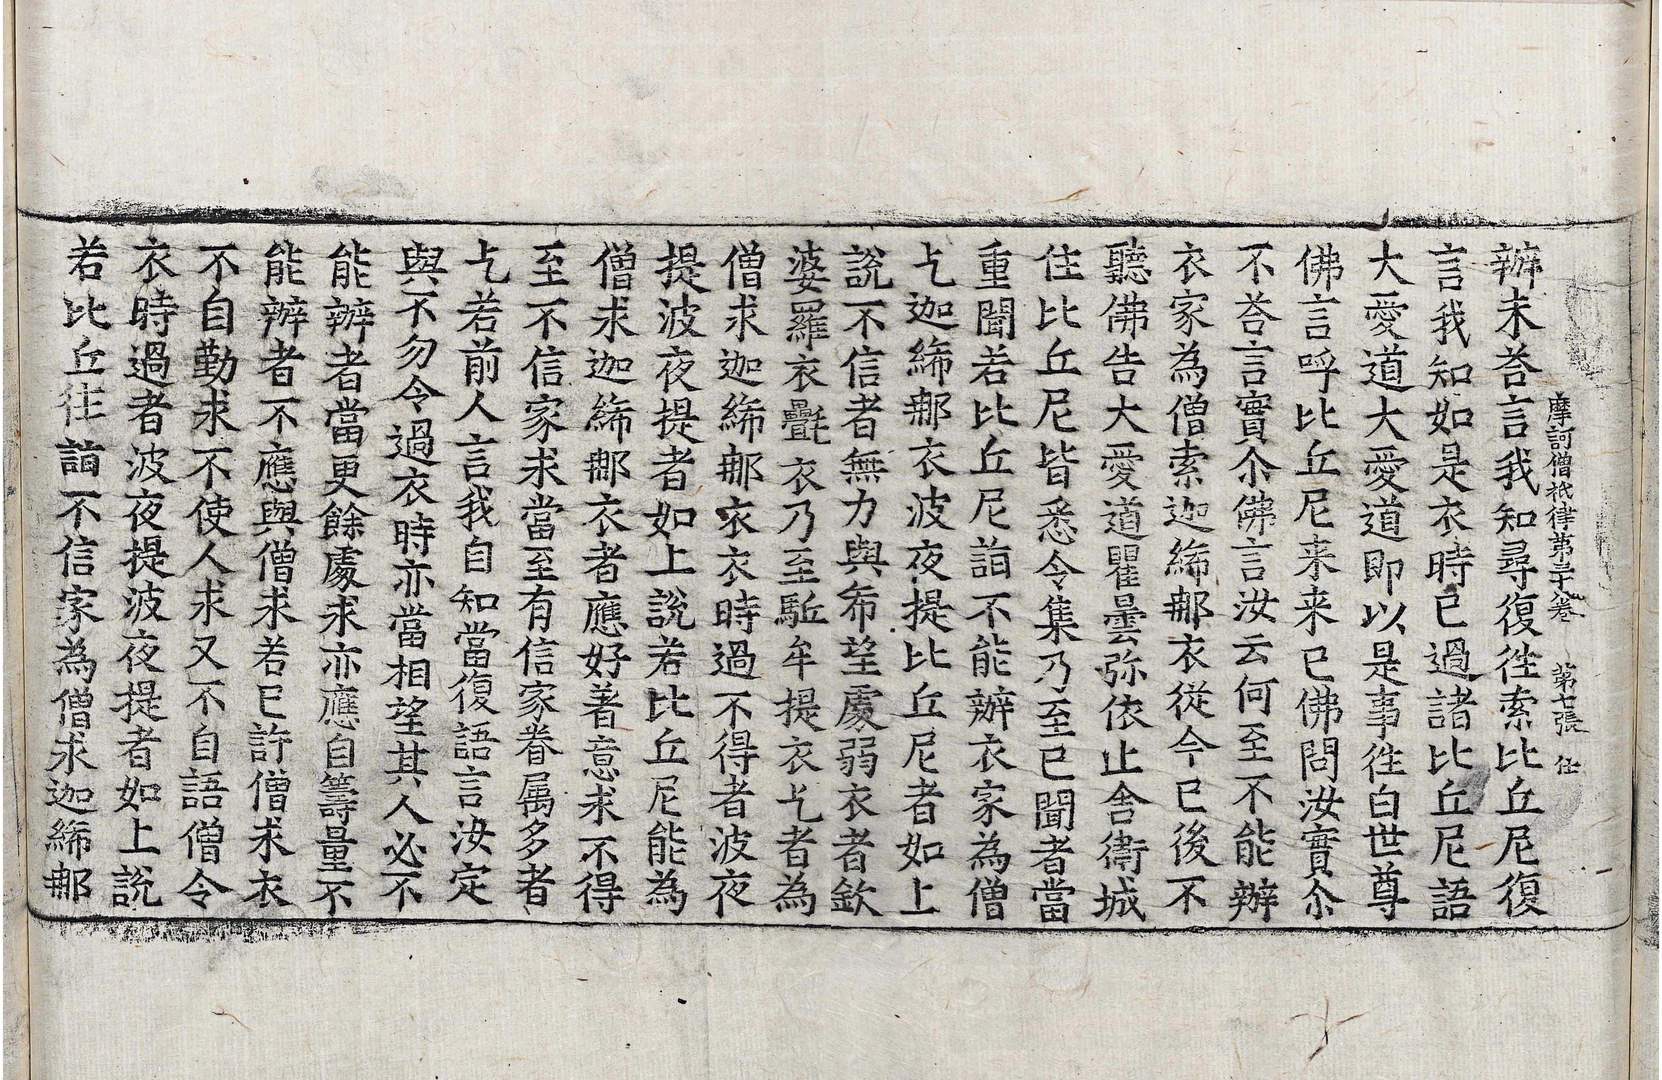 摩訶僧祇律第三十八卷　第七張　仕
辦未荅言我知尋復徃索比丘尼復
言我知如是衣時已過諸比丘尼語
大愛道大愛道即以是事徃白世尊
佛言呼比丘尼来来已佛問汝實尒
不荅言實尒佛言汝云何至不能辦
衣家為僧索迦絺那衣從今已後不
聽佛告大愛道瞿曇弥依止舎衛城
住比丘尼皆悉令集乃至已聞者當
重聞若比丘尼詣不能辦衣家為僧
乞迦絺那衣波夜提比丘尼者如上
說不信者無力與希望處弱衣者欽
婆羅衣㲲衣乃至駈牟提衣乞者為
僧求迦絺那衣衣時過不得者波夜
提波夜提者如上說若比丘尼能為
僧求迦絺那衣者應好著意求不得
至不信家求當至有信家眷属多者
乞若前人言我自知當復語言汝定
與不勿令過衣時亦當相望其人必不
能辦者當更餘處求亦應自籌量不
能辦者不應與僧求若已許僧求衣
不自勤求不使人求又不自語僧令
衣時過者波夜提波夜提者如上說
若比丘往詣不信家為僧求迦絺那